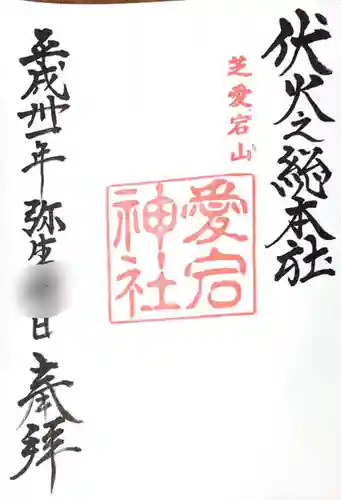 伏火之総本社
芝愛宕山
愛宕
神社
平成卅一年弥生
日
奉拝